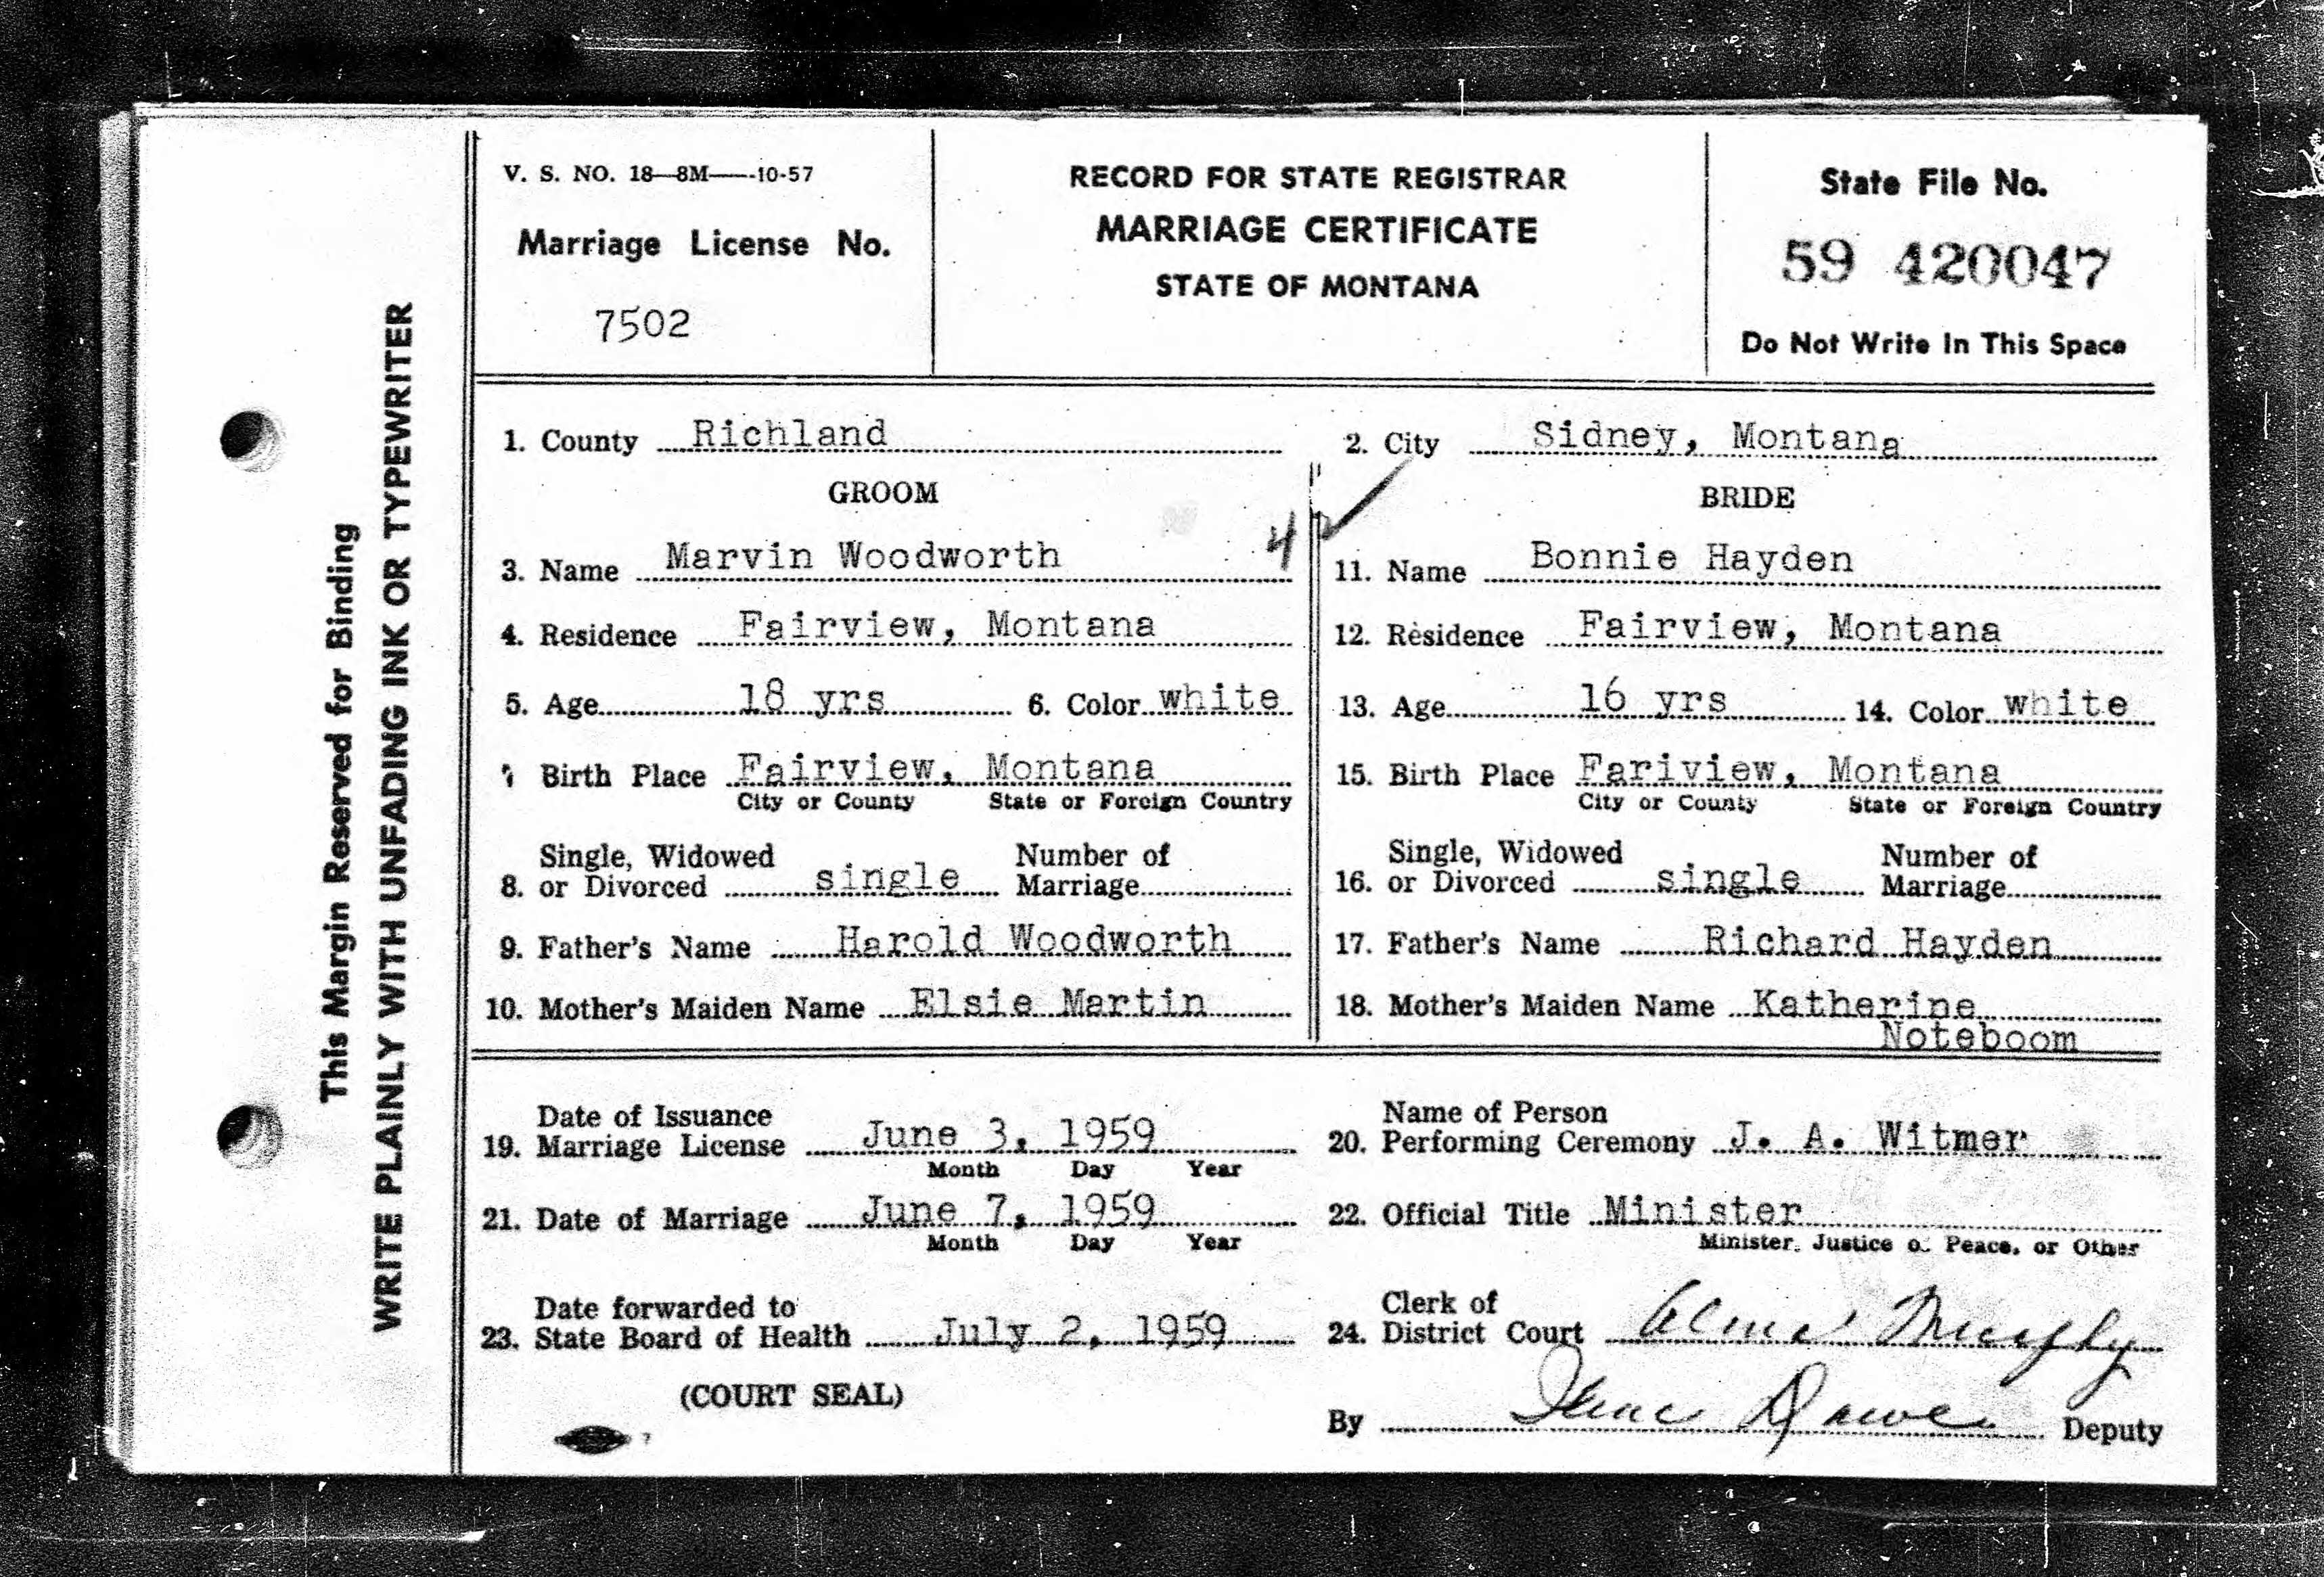 This Margin Reserved for Binding
WRITE PLAINLY WITH UNFADING INK OR TYPEWRITER
V. S. NO. 18—8M—-10-57
Marriage License No.
7502
RECORD FOR STATE REGISTRAR
MARRIAGE CERTIFICATE
STATE OF MONTANA
State File No.
59 420047
Do Not Write In This Space
1. County Richland
2. City Sidney, Montana
GROOM
BRIDE
4
3. Name Marvin Woodworth
11. Name Bonnie Hayden
4. Residence Fairview, Montana
12. Residence Fairview, Montana
5. Age 18 yrs 6. Color white
13. Age 16 yrs 14. Color white
Birth Place Fairview, Montana
City or County State or Foreign Country
15. Birth Place Fariview, Montana
City or County State or Foreign Country
Single, Widowed Number of
8. or Divorced single Marriage
Single, Widowed Number of
16. or Divorced single Marriage
9. Father's Name Harold Woodworth
17. Father's Name Richard Hayden
10. Mother's Maiden Name Elsie Martin
18. Mother's Maiden Name Katherine
Noteboom
Date of Issuance
19. Marriage License June 3, 1959
Month Day Year
Name of Person
20. Performing Ceremony J. A. Witmer
21. Date of Marriage June 7, 1959
Month Day Year
22. Official Title Minister
Minister, Justice of Peace, or Other
Date forwarded to
23. State Board of Health July 2, 1959
Clerk of
24. District Court Alma Murphy
(COURT SEAL)
By Deputy